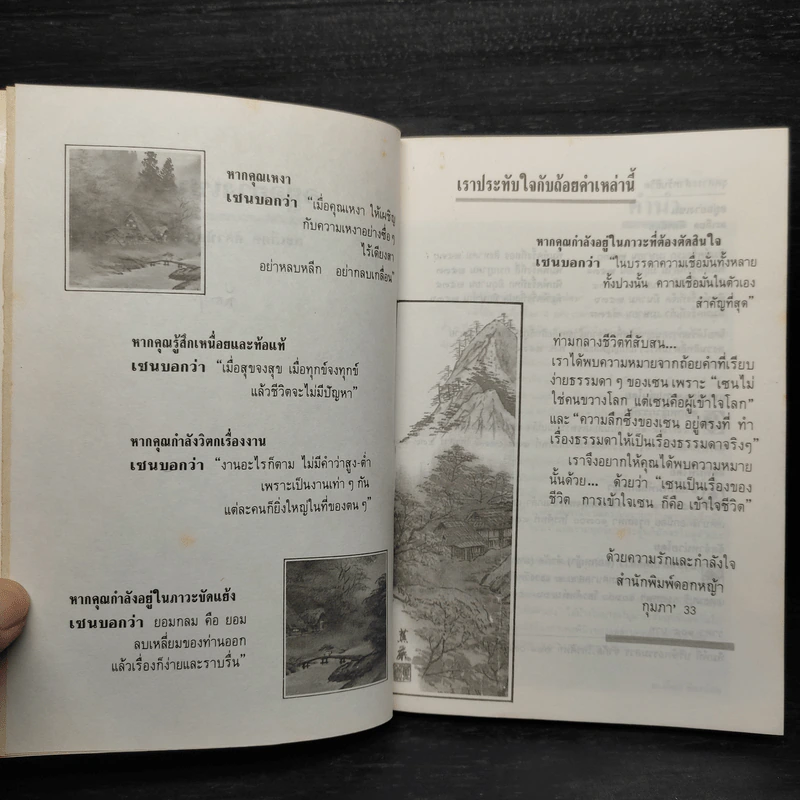 หากคุณเหงา
เซนบอกว่า "เมื่อคุณเหงา ให้เผชิญ
กับความเหงาอย่างซื่อๆ
ไร้เดียงสา
อย่าหลบหลีก อย่ากลบเกลื่อน"
หากคุณรู้สึกเหนื่อยและท้อแท้
เซนบอกว่า "เมื่อสุขจงสุข เมื่อทุกข์จงทุกข์
แล้วชีวิตจะไม่มีปัญหา"
หากคุณกำลังวิตกเรื่องงาน
เซนบอกว่า "งานอะไรก็ตาม ไม่มีคำว่าสูง-ต่ำ
เพราะเป็นงานเท่า ๆ กัน
แต่ละคนก็ยิ่งใหญ่ในที่ของตน ๆ"
หากคุณกำลังอยู่ในภาวะขัดแย้ง
เซนบอกว่า ยอมกลม คือ ยอม
ลบเหลี่ยมของท่านออก
แล้วเรื่องก็ง่ายและราบรื่น"
เราประทับใจกับถ้อยคำเหล่านี้
หากคุณกำลังอยู่ในภาวะที่ต้องตัดสินใจ
เซนบอกว่า "ในบรรดาความเชื่อมั่นทั้งหลาย
ทั้งปวงนั้น ความเชื่อมั่นในตัวเอง
สำคัญที่สุด"
ท่ามกลางชีวิตที่สับสน...
เราได้พบความหมายจากถ้อยคำที่เรียบ
ง่ายธรรมดา ๆ ของเซน เพราะ "เซนไม่
ใช่คนขวางโลก แต่เซนคือผู้เข้าใจโลก"
และ "ความลึกซึ้งของเซน อยู่ตรงที่ ทำ
เรื่องธรรมดาให้เป็นเรื่องธรรมดาจริงๆ"
เราจึงอยากให้คุณได้พบความหมาย
นั้นด้วย... ด้วยว่า "เซนเป็นเรื่องของ
ชีวิต การเข้าใจเซน ก็คือ เข้าใจชีวิต"
ด้วยความรักและกำลังใจ
สำนักพิมพ์ดอกหญ้า
กุมภา' 33